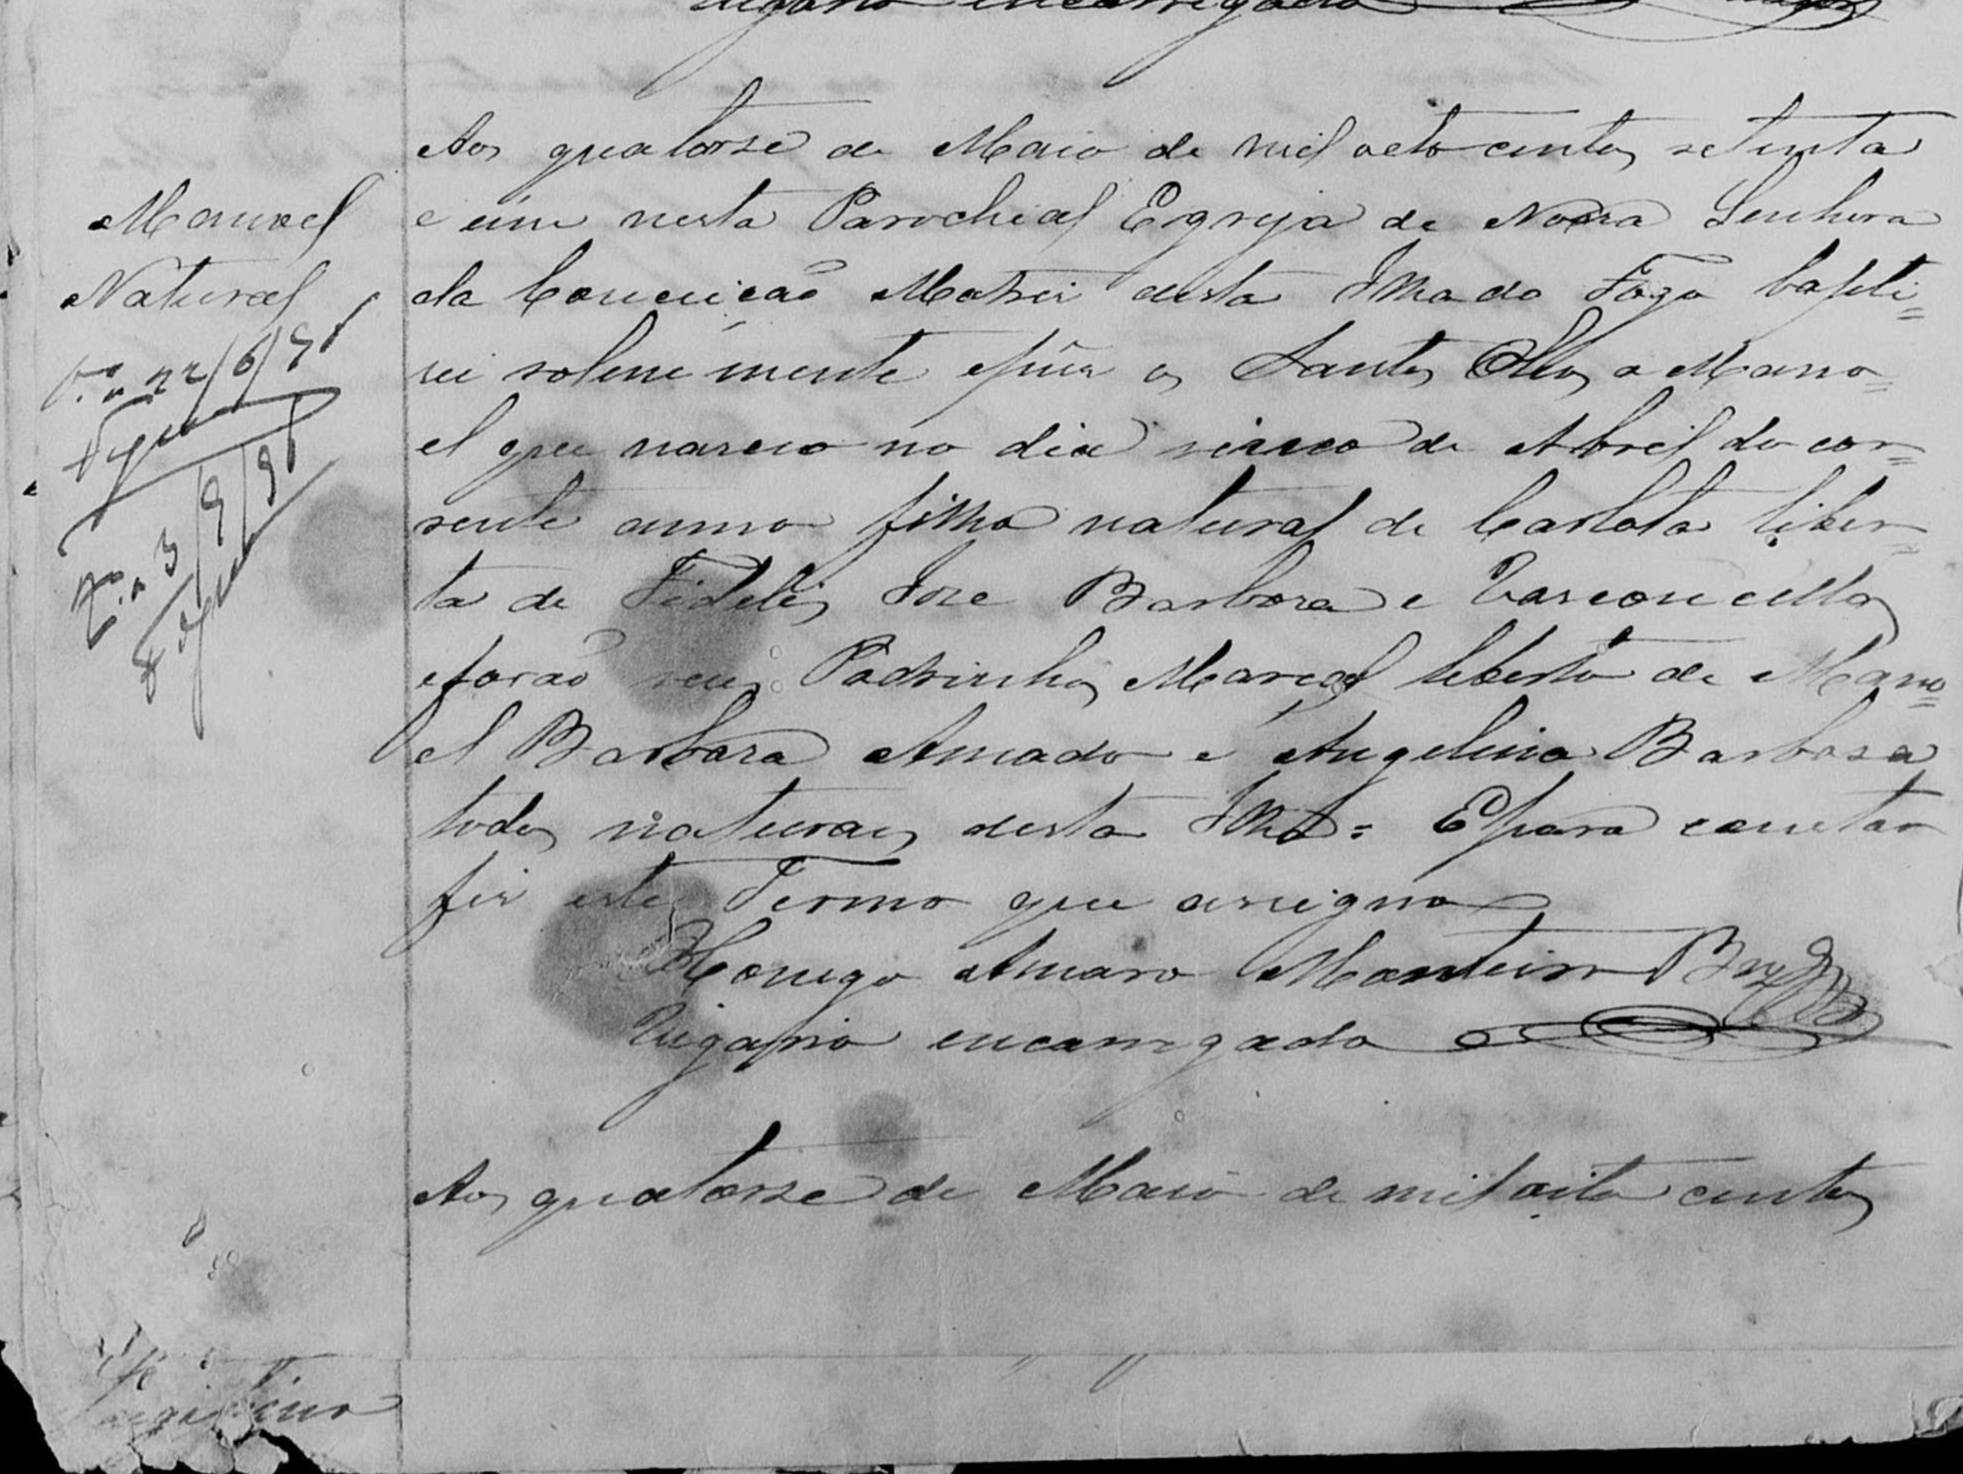 Vigario encarregado
Aos quatorse de Maio de mil oito centos setenta
e um nesta Parochial Egreja de Nossa Senhora
da Conceiçaõ Matris desta Ilha do Fogo bapti=
sei solene mente e puz os Santos Olios a Mano=
el que nasceo no dia sinco de Abril do cor=
rente anno filho natural de Carlota liber=
ta de Fidelis Jose Barboza e Vasconcellos
e foraõ seus Padrinhos Marçal liberto de Mano=
el Barboza Amado e Angelina Barboza
todos naturaes desta Ilha= E para constar
fiz este Termo que assigno
Conego Amaro Monteiro
Vigario encarregado
Manoel
Natural
22/6/
3/9/
Aos quatorse de Maio de mil oito centos